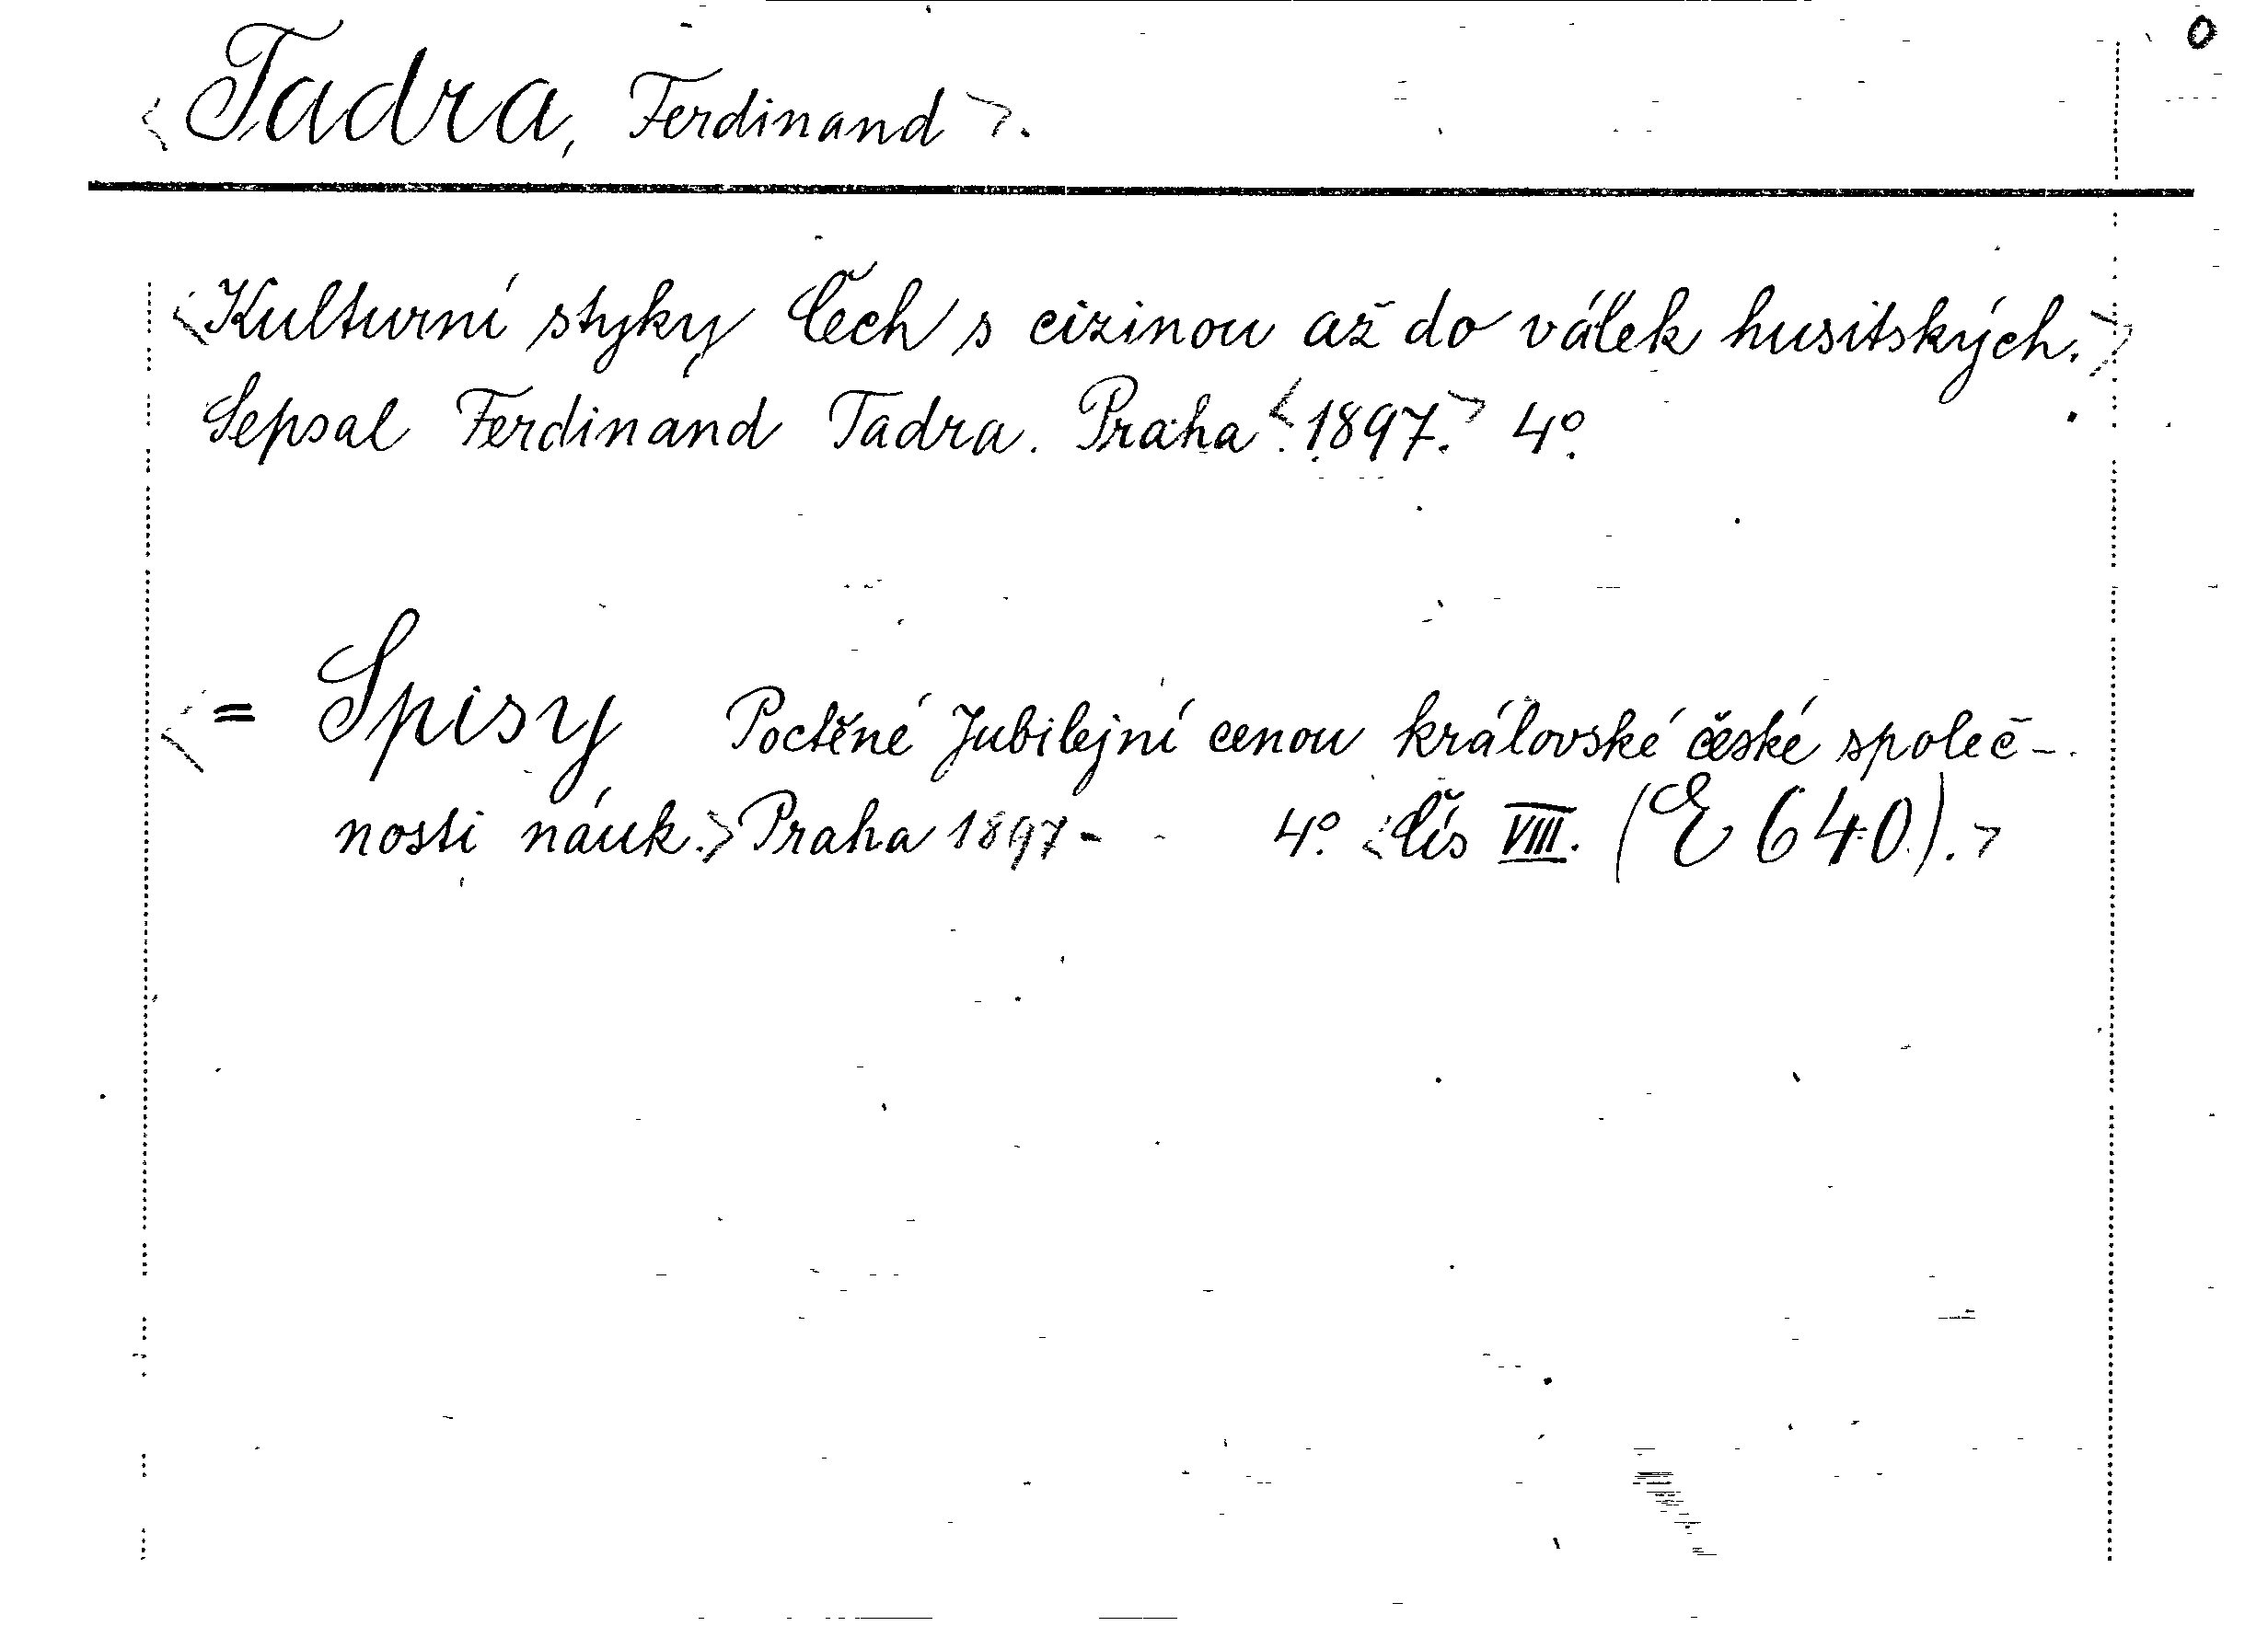 0
<Tadra, Ferdinand>.
<Kulturní styky Čech s cizinou až do válek husitských.>
Sepsal Ferdinand Tadra. Praha <1897.> 4°.
<= Spisy Poctěné Jubilejní cenou královské české společ-
nosti náuk.> Praha 1897- 4°. <Čís VIII. (E 640).>